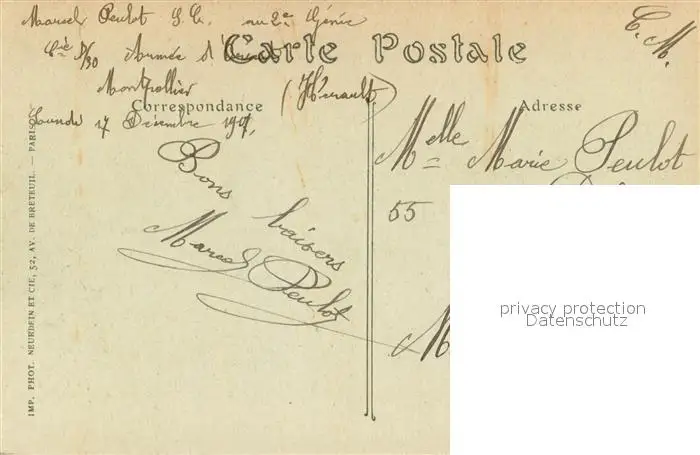 Marcel Peulot S. C. au 2e Génie
Cie D/30 Armée d'
Montpellier (Hérault)
17 Décembre
C. M.
Carte Postale
Correspondance
Adresse
Bons
baisers
Marcel Peulot
Melle Marie Peulot
55
M
IMP. PHOT. NEURDEIN ET CIE, 52, AV. DE BRETEUIL. — PARIS
privacy protection
Datenschutz